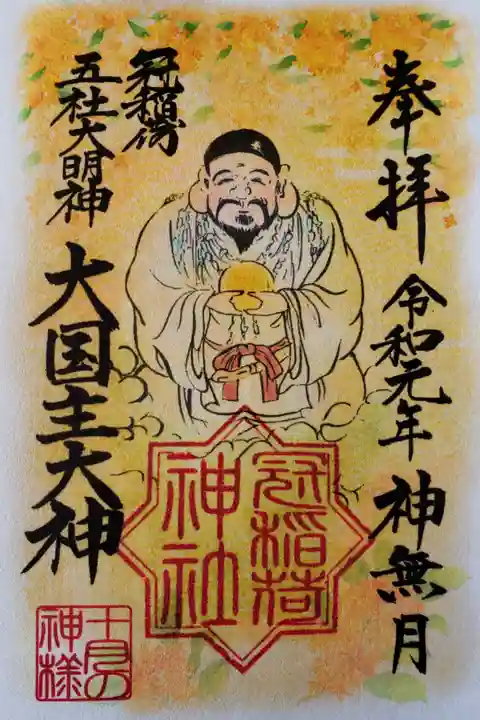 奉拝
令和元年 神無月
冠稲荷
五社大明神
大国主大神
冠稲荷
神社
十月の
神様